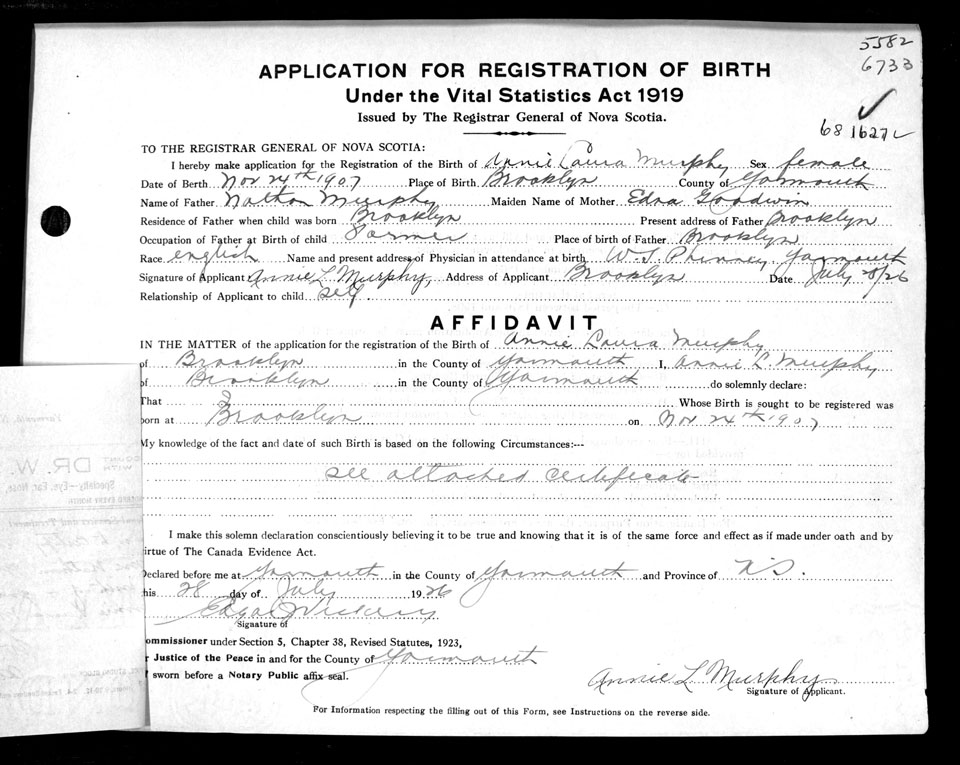 5582
6733
68 16272
APPLICATION FOR REGISTRATION OF BIRTH
Under the Vital Statistics Act 1919
Issued by The Registrar General of Nova Scotia.
TO THE REGISTRAR GENERAL OF NOVA SCOTIA:
I hereby make application for the Registration of the Birth of Annie Laura Murphy Sex female
Date of Berth Nov 24th 1907 Place of Birth Brooklyn County of Yarmouth
Name of Father Nathan Murphy Maiden Name of Mother Edna Goodwin
Residence of Father when child was born Brooklyn Present address of Father Brooklyn
Occupation of Father at Birth of child Farmer Place of birth of Father Brooklyn
Race english Name and present address of Physician in attendance at birth W. T. Phinney, Yarmouth
Signature of Applicant Annie L Murphy, Address of Applicant Brooklyn Date July 28/26
Relationship of Applicant to child self
AFFIDAVIT
IN THE MATTER of the application for the registration of Birth of Annie Laura Murphy
of Brooklyn in the County of Yarmouth I, Annie L Murphy
of Brooklyn in the County of Yarmouth do solemnly declare:
That I Whose Birth is sought to be registered was
born at Brooklyn on Nov 24th 1907
My knowledge of the fact and date of such Birth is based on the following Circumstances:---
see attached certificate
I make this solemn declaration conscientiously believing it to be true and knowing that it is of the same force and effect as if made under oath and by
irtue of The Canada Evidence Act.
Declared before me at Yarmouth in the County of Yarmouth and Province of N.S.
his 28 day of July 1926
Edgar Vickery
Signature of
ommissioner under Section 5, Chapter 38, Revised Statutes, 1923,
r Justice of the Peace in and for the County of Yarmouth
f sworn before a Notary Public affix seal.
Annie L Murphy
Signature of Applicant.
For Information respecting the filling out of this Form, see Instructions on the reverse side.
DR. W.
Specialty-Eye, Ear, Nose,